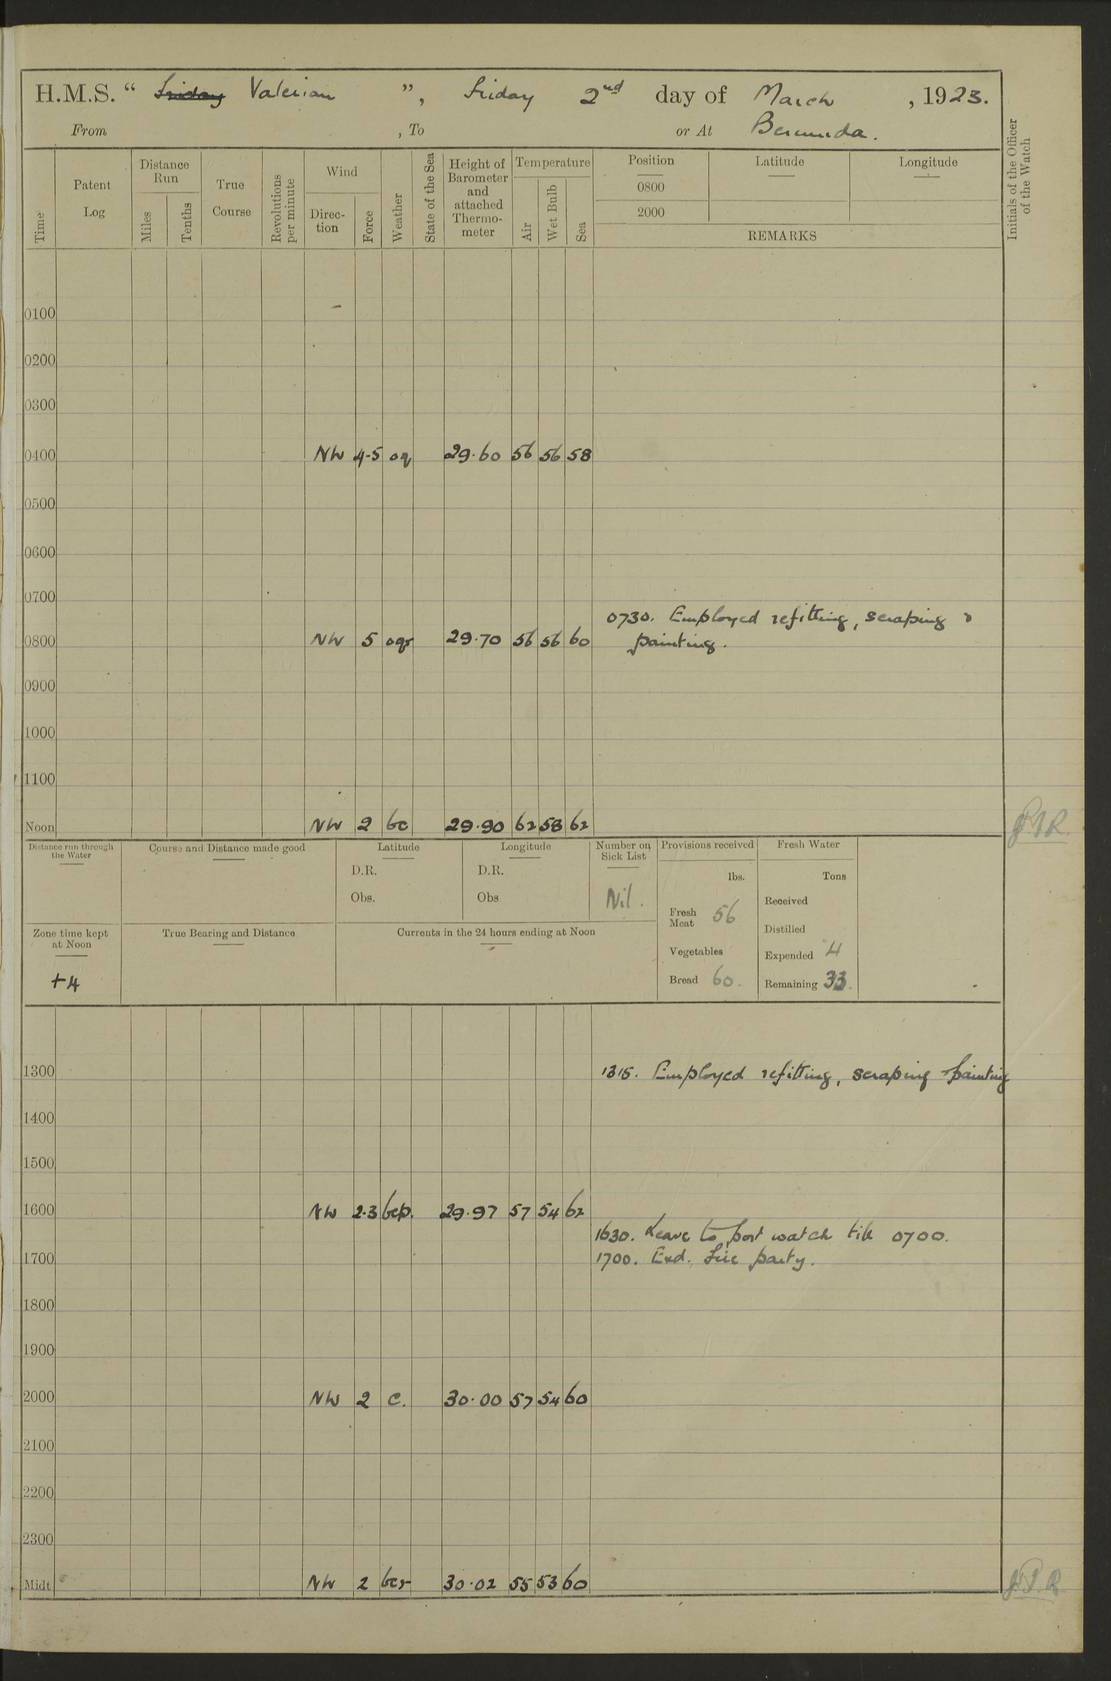 H.M.S. " Friday Valerian ", Friday 2nd day of March , 1923.
From , To or At Bermuda.
Time
Patent Log
Distance Run
Miles
Tenths
True Course
Revolutions per minute
Wind
Direction
Force
Weather
State of the Sea
Height of Barometer and attached Thermometer
Temperature
Air
Wet Bulb
Sea
Position Latitude Longitude
0800
2000
REMARKS
Initials of the Officer of the Watch
0100
0200
0300
0400 NW 4-5 oq 29.60 56 56 58
0500
0600
0700
0730. Employed refitting, scraping &
0800 NW 5 oqr 29.70 56 56 60 painting.
0900
1000
1100
Noon NW 2 bc 29.90 62 58 62
Distance run through the Water
Course and Distance made good
Latitude
D.R.
Obs.
Longitude
D.R.
Obs
Number on Sick List
Nil.
Provisions received
lbs.
Fresh Meat 56
Vegetables
Bread 60.
Fresh Water
Tons
Received
Distilled
Expended 4
Remaining 33.
Zone time kept at Noon
+4
True Bearing and Distance
Currents in the 24 hours ending at Noon
1300 1315. Employed refitting, scraping & painting
1400
1500
1600 NW 2.3 bcp. 29.97 57 54 62
1630. Leave to port watch till 0700.
1700 1700. Exd. fire party.
1800
1900
2000 NW 2 c. 30.00 57 54 60
2100
2200
2300
Midt. NW 2 bcr 30.02 55 53 60